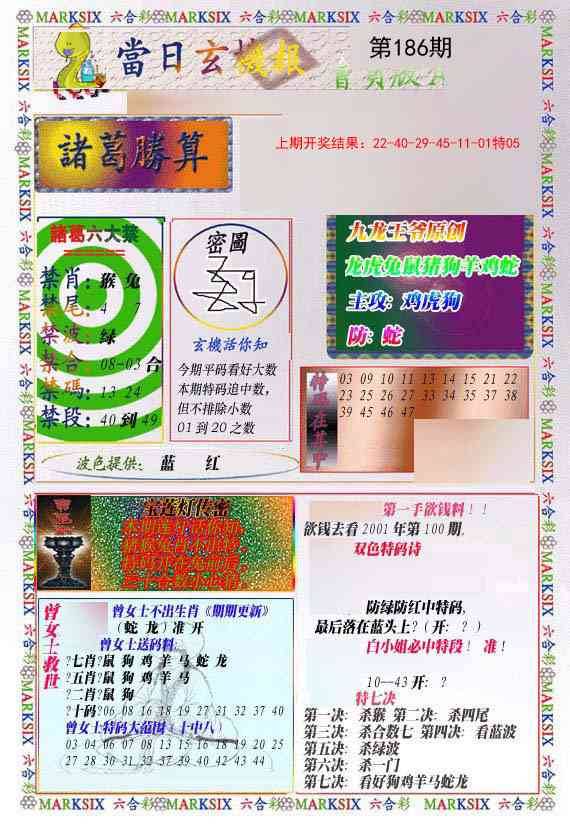 當日玄機報
第186期
諸葛勝算
上期开奖结果：22-40-29-45-11-01特05
諸葛六大禁
禁肖：猴 兔
禁尾：4 7
禁波：绿
禁合：08-03 合
禁碼：13 24
禁段：40 到 49
密圖
玄機活你知
今期平码看好大数
本期特码追中数，
但不排除小数
01 到 20 之数
九龙王爷原创
龙虎兔鼠猪狗羊鸡蛇
主攻：鸡虎狗
防：蛇
特码在其中
03 09 10 11 13 14 15 21 22
23 25 26 27 33 34 35 37 38
39 45 46 47
波色提供： 蓝 红
宝莲灯传密
第一手欲钱料！！
欲钱去看 2001 年第 100 期。
双色特码诗
防绿防红中特码，
最后落在蓝头上？（开：？）
白小姐必中特段！ 准！
10--43 开：？
特七决
第一决：杀猴 第二决：杀四尾
第三决：杀合数七 第四决：看蓝波
第五决：杀绿波
第六决：杀一门
第七决：看好狗鸡羊马蛇龙
曾女士救世
曾女士不出生肖《期期更新》
（蛇 龙）准 开
曾女士送码料：
?七肖?鼠 狗 鸡 羊 马 蛇 龙
?五肖?鼠 狗 鸡 羊 马
?二肖?鼠 狗
?十码?06 08 16 18 19 27 31 32 37 40
曾女士特码大范围（十中八）
03 04 06 07 08 13 15 16 18 19 20 25
27 28 30 31 32 37 39 40 42 43 44
MARKSIX 六合彩